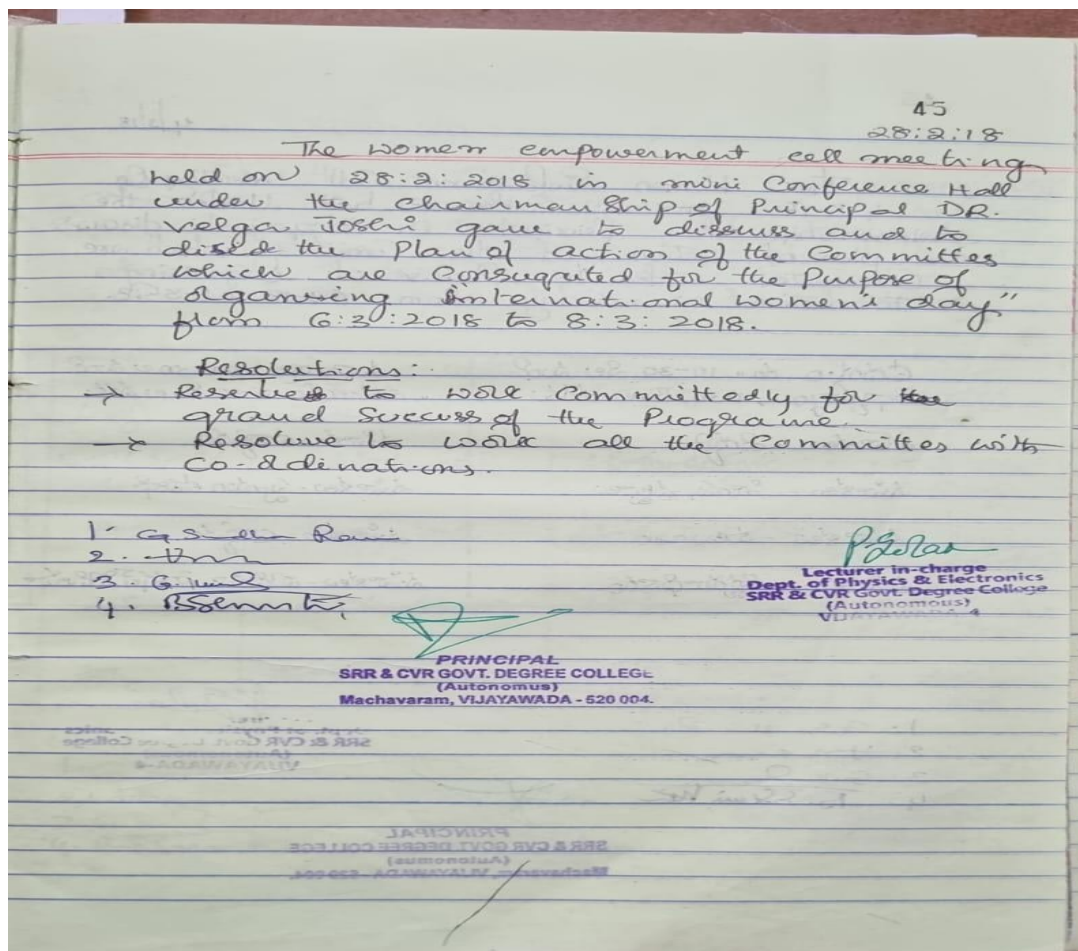 45
28:2:18
The women empowerment cell meeting
held on 28:2:2018 in mini Conference Hall
under the chairmanship of Principal DR.
velga Joshi gave to discuss and to
the Plan of action of the Committes
which are for the Purpose of
organising international women's day"
from 6:3:2018 to 8:3:2018.
Resolutions:
→ to work Committedly for the
grand Success of the Programe.
→ Resolve to work all the Committes with
Co-ordinations.
1.
2.
3. G
4.
Lecturer in-charge
Dept. of Physics & Electronics
SRR & CVR Govt. Degree College
(Autonomous)
VIJAYAWADA-4
PRINCIPAL
SRR & CVR GOVT. DEGREE COLLEGE
(Autonomus)
Machavaram, VIJAYAWADA - 520 004.